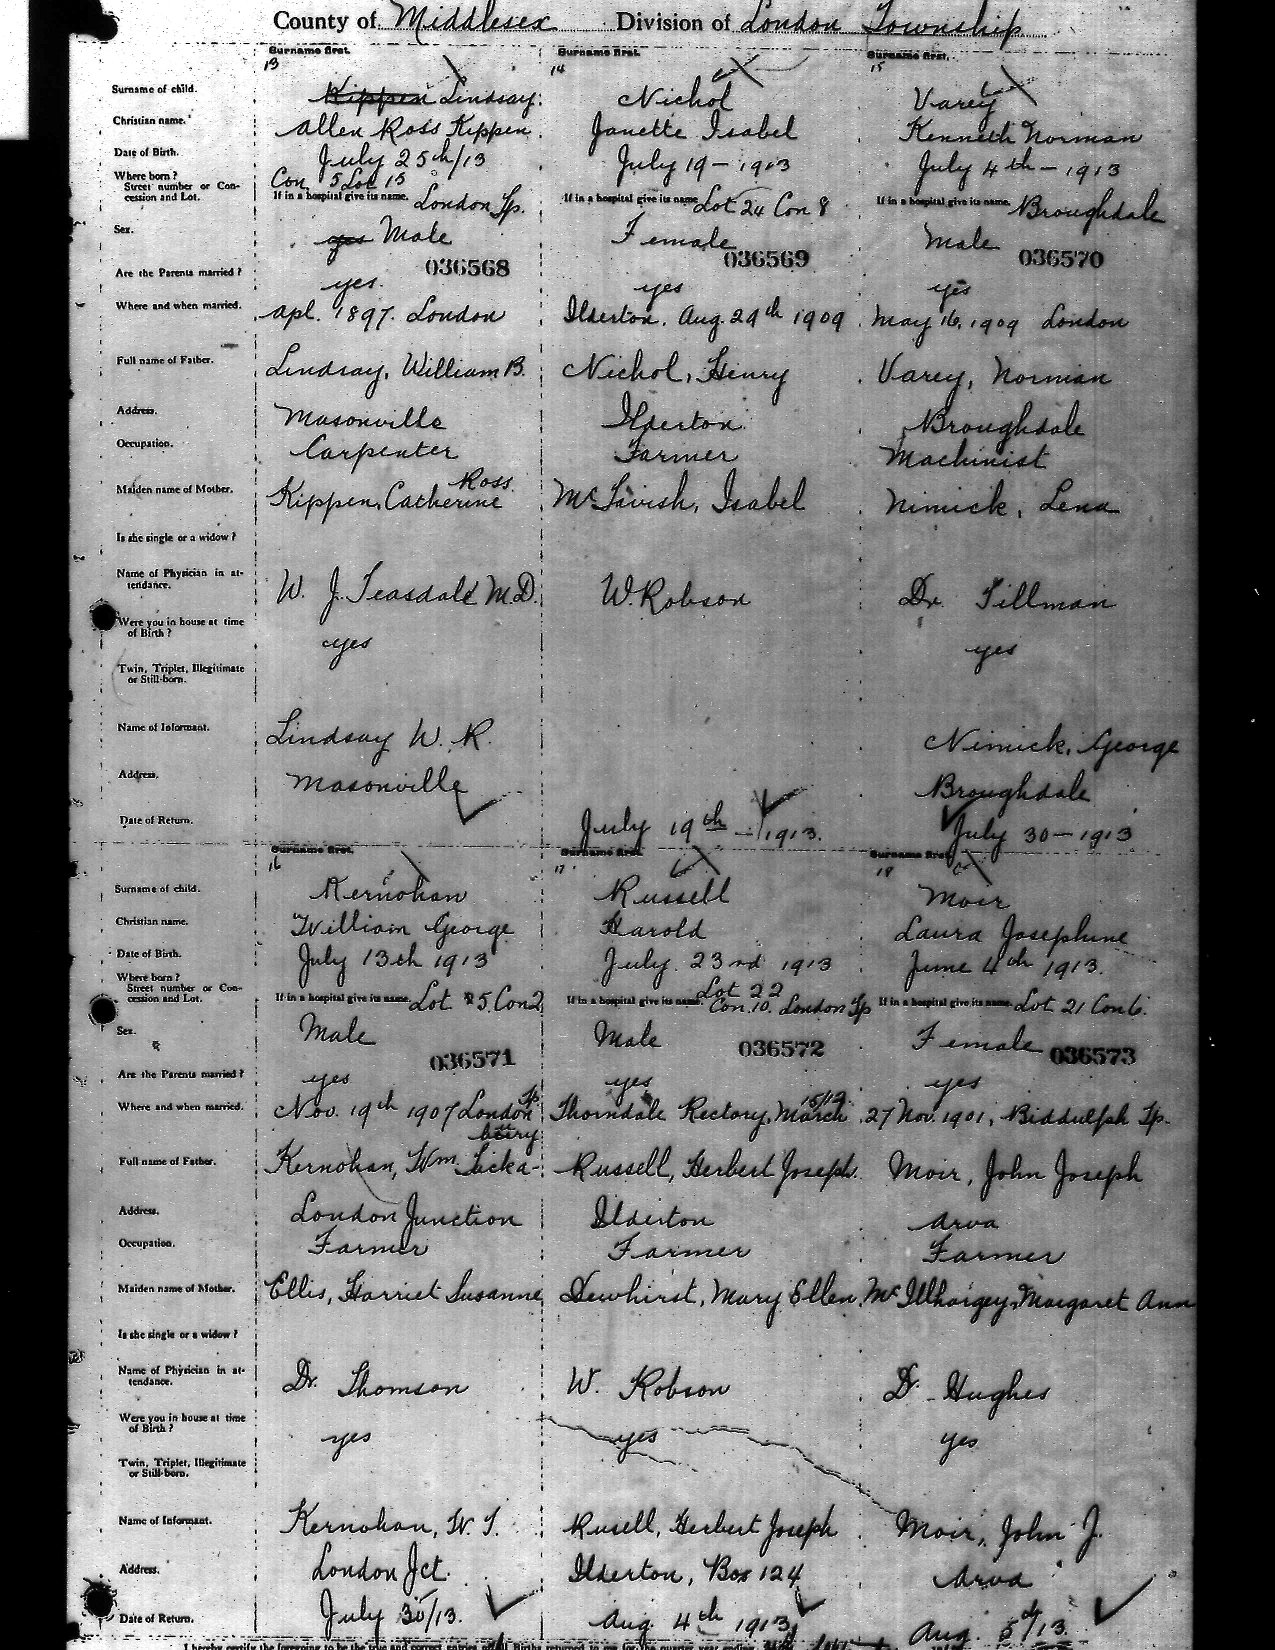 County of Middlesex Division of London Township
Surname first. Surname first. Surname first.
13 14 15
Surname of child. Kippen Lindsay. Nichol Varey
Christian name. Allen Ross Kippen. Janette Isabel Kenneth Norman
Date of Birth. July 25th/13 July 19 - 1913 July 4th - 1913
Where born? Con. 5 Lot 15
Street number or Con-
cession and Lot. If in a hospital give its name. London Tp. If in a hospital give its name. Lot 24 Con 8 If in a hospital give its name. Broughdale
Sex. yes Male Female Male
036568 036569 036570
Are the Parents married? yes. yes yes
Where and when married. Apl. 1897. London Ilderton. Aug. 29th 1909 May 16, 1909 London
Full name of Father. Lindsay, William B. Nichol, Henry Varey, Norman
Address. Masonville Ilderton Broughdale
Occupation. Carpenter Farmer Machinist
Ross
Maiden name of Mother. Kippen, Catherine McTavish, Isabel Nimick, Lena
Is she single or a widow?
Name of Physician in at-
tendance. W. J. Teasdale M.D. W. Robson Dr. Tillman
Were you in house at time
of Birth? yes yes
Twin, Triplet, Illegitimate
or Still-born.
Name of Informant. Lindsay W. R. Nimick, George
Address. Masonville Broughdale
Date of Return. July 19th - 1913. July 30 - 1913
Surname first. Surname first. Surname first.
16 17 18
Surname of child. Kernohan Russell Moir
Christian name. William George Harold Laura Josephine
Date of Birth. July 13th 1913 July 23rd 1913 June 4th 1913.
Where born? Lot 22
Street number or Con-
cession and Lot. If in a hospital give its name. Lot 25. Con 2 If in a hospital give its name. Con. 10. London Tp If in a hospital give its name. Lot 21 Con 6.
Sex. Male Male Female
036571 036572 036573
Are the Parents married? yes yes yes
Tp. 15/12
Where and when married. Nov. 19th 1907 London Thorndale Rectory, March 27 Nov. 1901, Biddulph Tp.
Full name of Father. Kernohan, Wm. Tacka- Russell, Herbert Joseph. Moir, John Joseph
Address. London Junction Ilderton Arva
Occupation. Farmer Farmer Farmer
Maiden name of Mother. Ellis, Harriet Susanne Dewhirst, Mary Ellen. McIllhargey, Margaret Ann
Is she single or a widow?
Name of Physician in at-
tendance. Dr. Thomson W. Robson Dr. Hughes
Were you in house at time
of Birth? yes yes yes
Twin, Triplet, Illegitimate
or Still-born.
Name of Informant. Kernohan, W. T. Rusell, Herbert Joseph Moir, John J.
Address. London Jct. Ilderton, Box 124 Arva
Date of Return. July 30/13. Aug. 4th 1913 Aug. 5th/13.
I hereby certify the foregoing to be the true and correct entries of Births returned to me for the quarter year ending